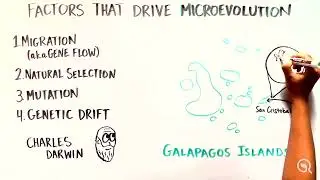 FACTORS THAT DRIVE MICROEVOLUTION
1. MIGRATION
(a.k.a GENE FLOW)
2. NATURAL SELECTION
3. MUTATION
4. GENETIC DRIFT
CHARLES
DARWIN
San Cristobal
GALAPAGOS ISLANDS